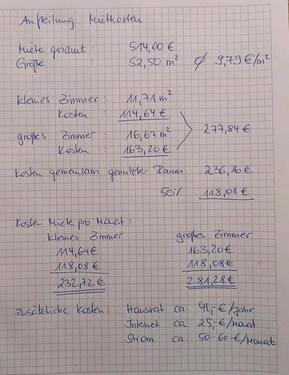 Aufteilung Mietkosten
Miete gesamt : 514,00 €
Größe : 52,50 m² ∅ 9,79 €/m²
kleines Zimmer : 11,71 m²
Kosten : 114,64 €
277,84 €
großes Zimmer : 16,67 m²
Kosten : 163,20 €
Kosten gemeinsam genutzter Raum 236,16 €
50% 118,08 €
Kosten Miete pro Monat :
kleines Zimmer großes Zimmer
114,64 € 163,20 €
118,08 € 118,08 €
232,72 € 281,28 €
zusätzliche Kosten : Hausrat ca. 41,- €/Jahr
Internet ca 25,- €/Monat
Strom ca. 50-60 €/Monat